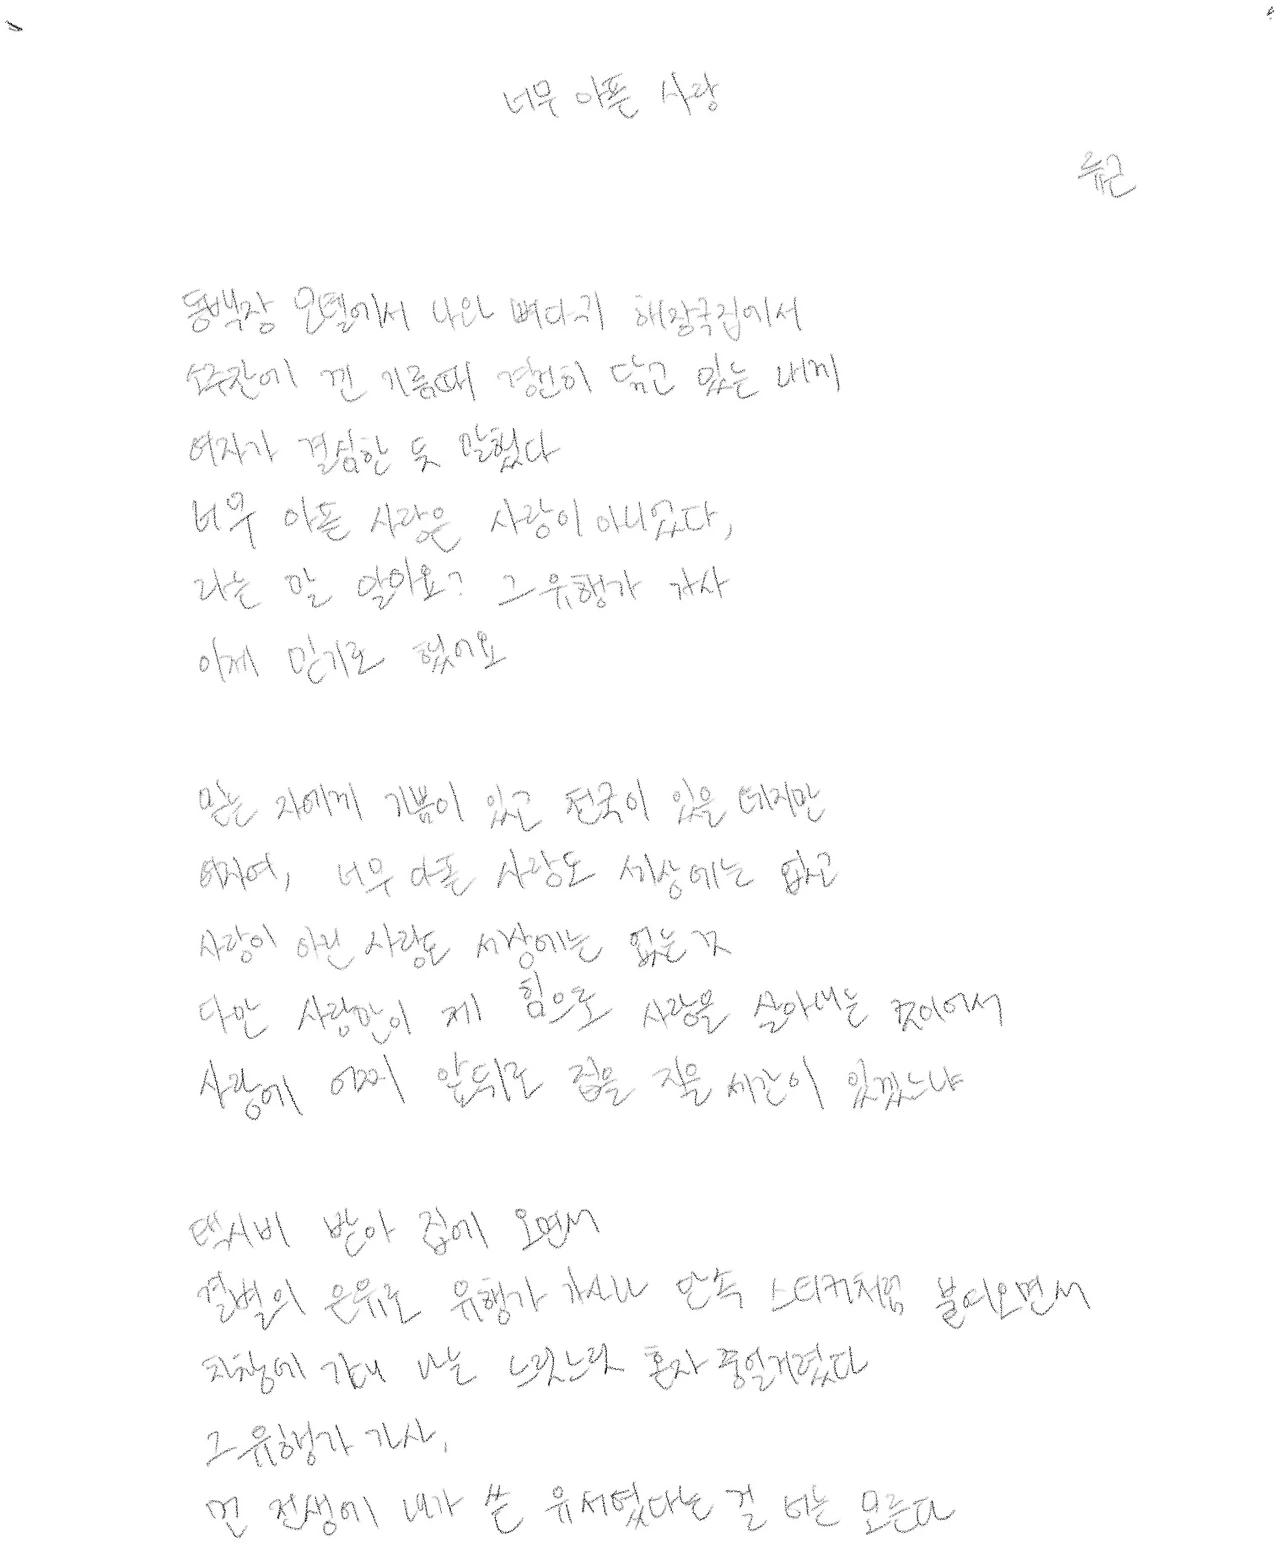 너무 아픈 사랑
류근
동백장 모텔에서 나와 뼈다귀 해장국집에서
소주잔에 낀 기름때 경건히 닦고 있는 내게
여자가 결심한 듯 말했다
너무 아픈 사랑은 사랑이 아니었다,
라는 말 알아요? 그 유행가 가사
이제 믿기로 했어요
믿는 자에게 기쁨이 있고 천국이 있을 테지만
여자여, 너무 아픈 사랑도 세상에는 없고
사랑이 아닌 사랑도 세상에는 없는 것
다만 사랑만이 제 힘으로 사랑을 살아내는 것이어서
사랑에 어찌 앞뒤로 집을 지을 세간이 있겠느냐
택시비 받아 집에 오면서
결별의 은유로 유행가 가사나 단속 스티커처럼 붙여오면서
차창에 기대 나는 느릿느릿 혼자 중얼거렸다
그 유행가 가사,
먼 전생에 내가 쓴 유서였다는 걸 너는 모른다